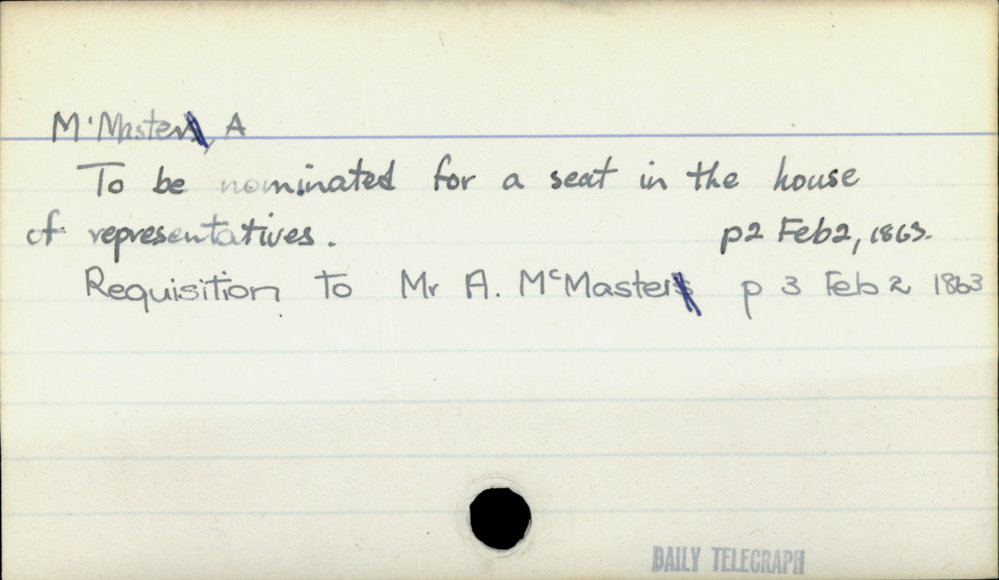 M'Master, A
To be nominated for a seat in the house
of representatives. p2 Feb 2, 1863.
Requisition to Mr A. McMaster p 3 Feb 2 1863
DAILY TELEGRAPH